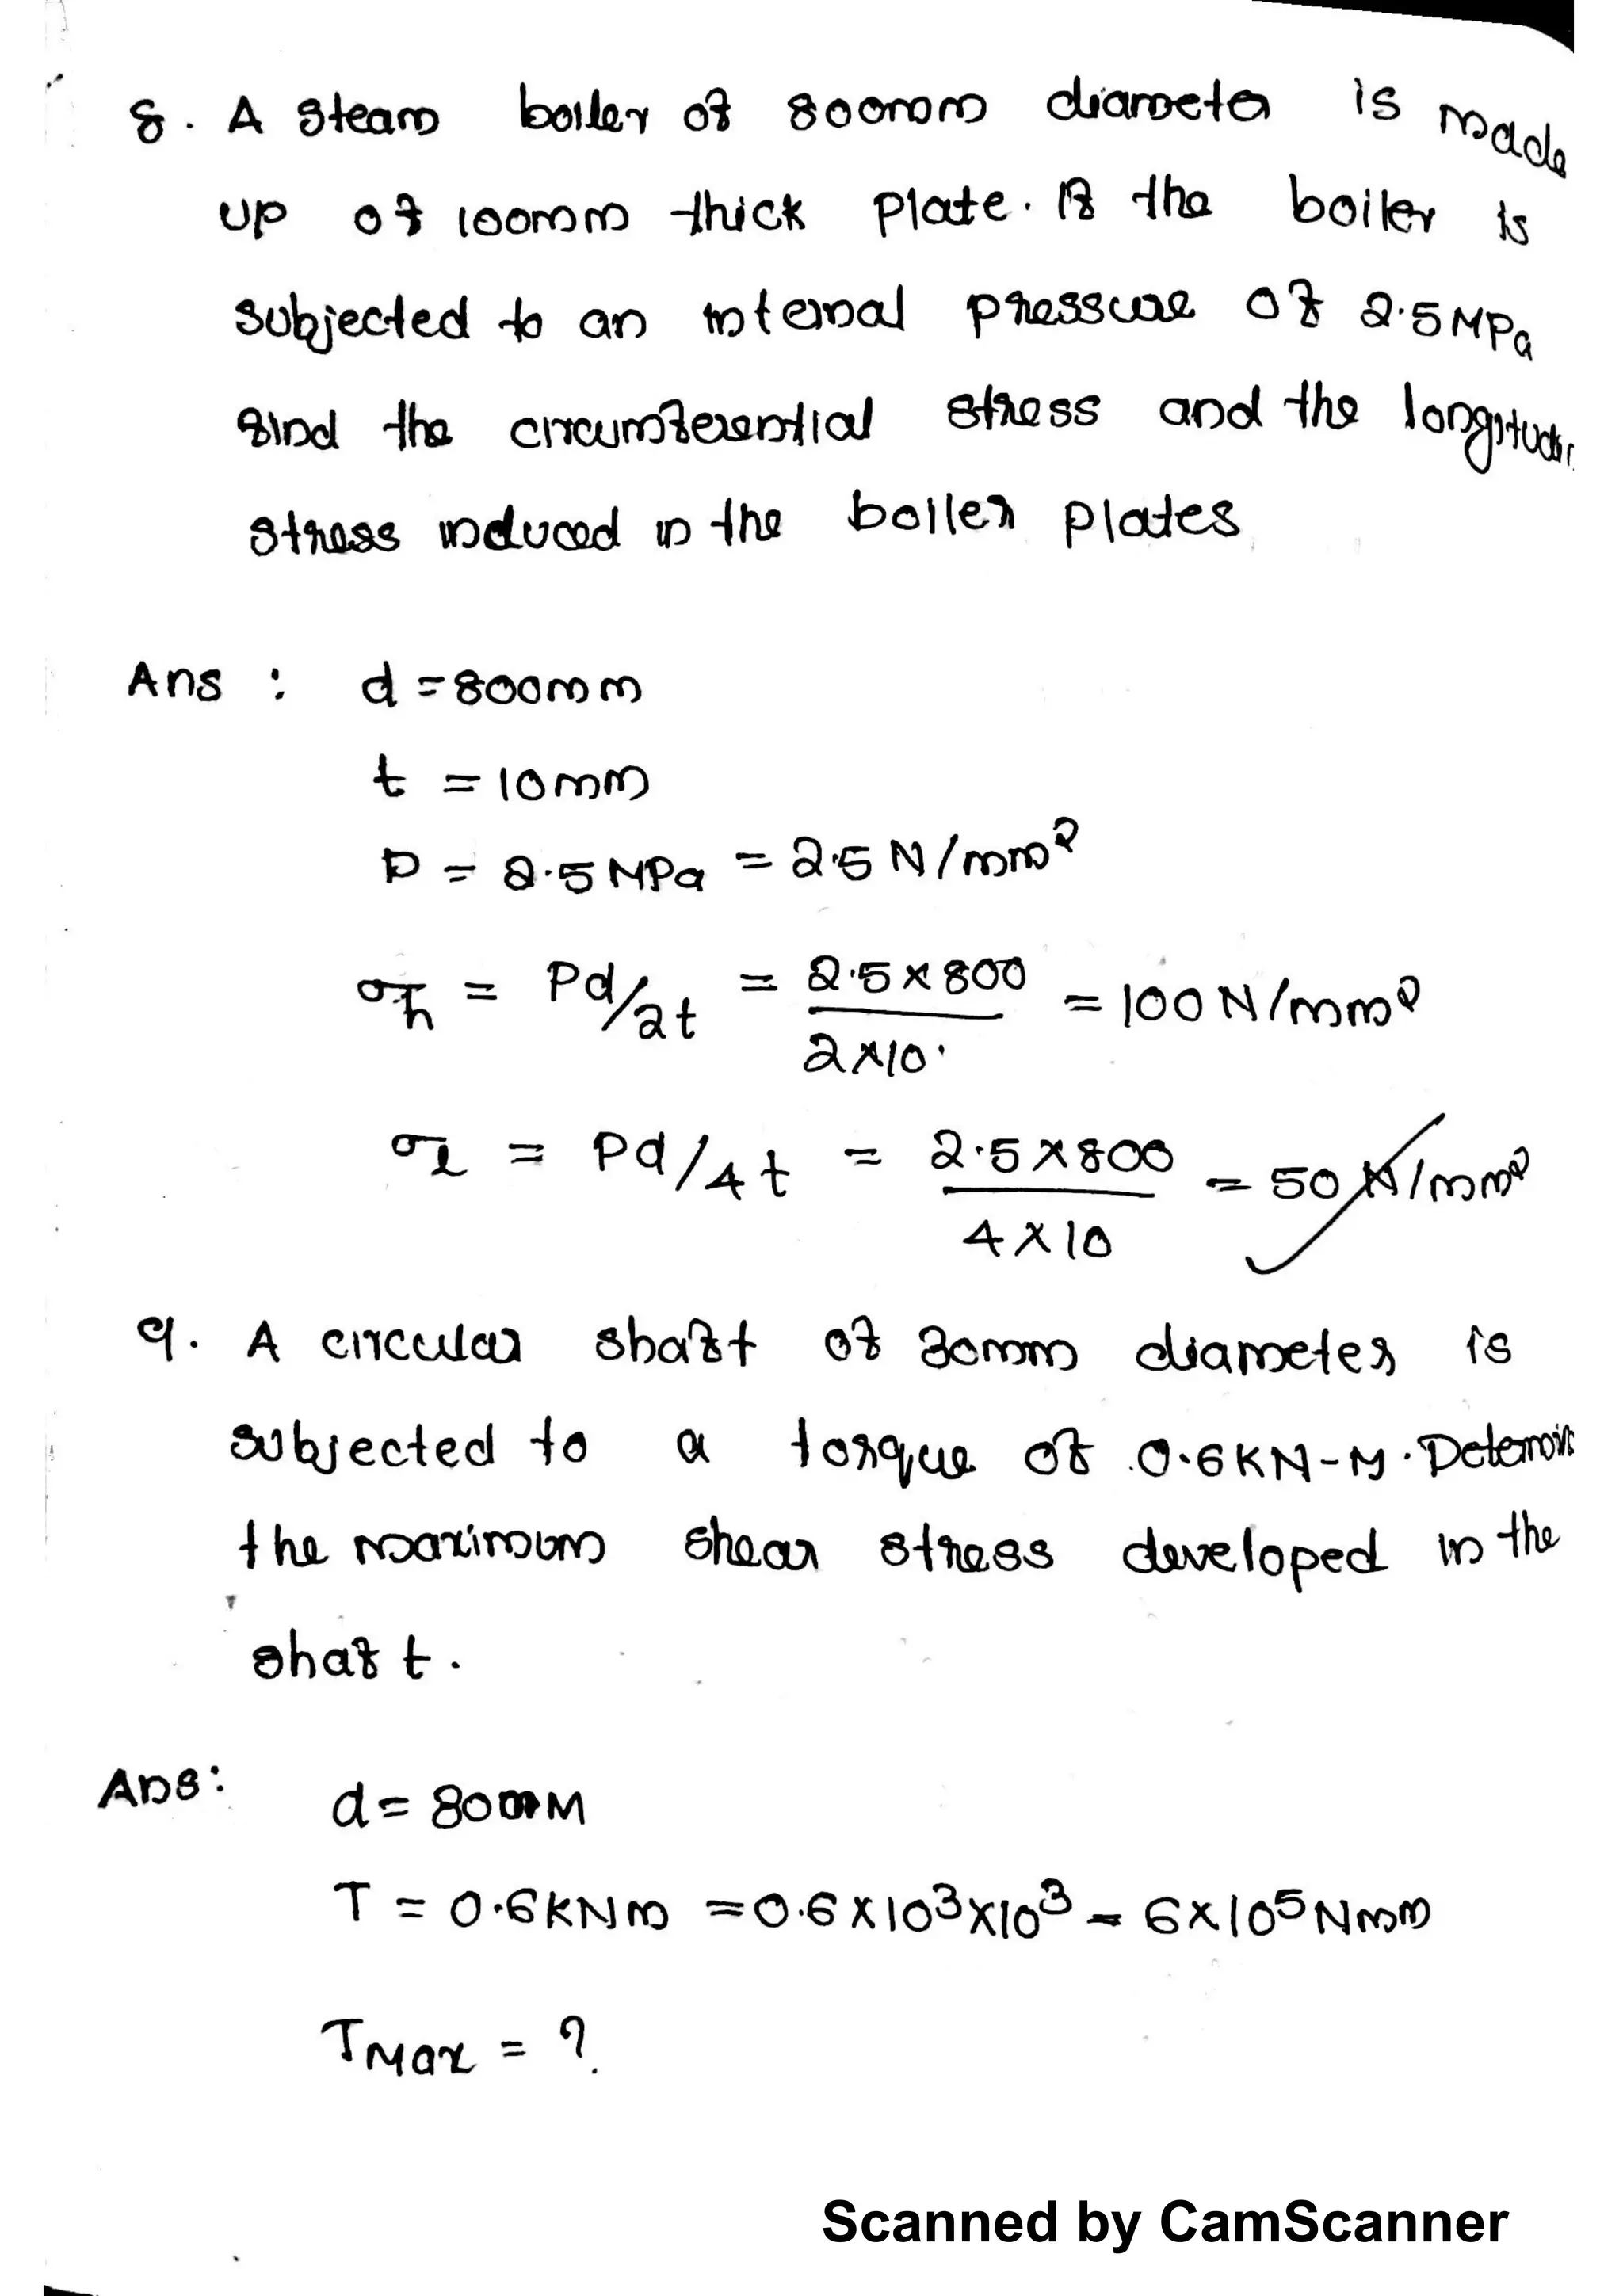 8. A steam boiler of 800mm diameter is made
up of 100mm thick plate. If the boiler is
subjected to an internal pressure of 2.5MPa
find the circumferential stress and the
stress induced in the boiler plates
Ans : d = 800mm
t = 10mm
P = 2.5 MPa = 2.5 N/mm²
σh = Pd/2t = 2.5 x 800 / 2 x 10 = 100 N/mm²
σL = Pd/4t = 2.5 x 800 / 4 x 10 = 50 N/mm²
9. A circular shaft of 30mm diameter is
subjected to a torque of 0.6KN-M.
the maximum shear stress developed in the
shaft.
Ans: d =
T = 0.6KNm = 0.6 x 10³ x 10³ = 6 x 10⁵ Nmm
TMax = ?
Scanned by CamScanner